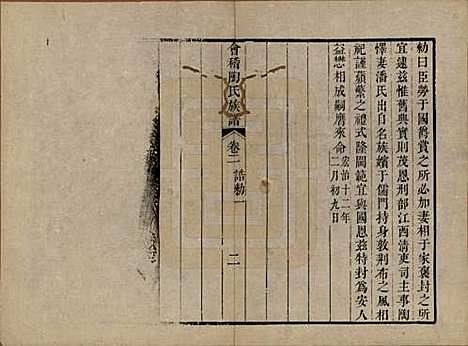 勅曰臣勞于國爵賞之所必加妻相于家褒封之所
宜逮兹惟舊典實則茂恩刑部江西清吏司主事陶
懌妻潘氏出自名族嬪于儒門持身敦荆布之風相
祀謹蘋蘩之禮式隆閫範宜與國恩兹特封爲安人
益懋相成嗣膺來命 宏治十二年
二月初九日
會稽陶氏族譜 卷二 誥勅一 二